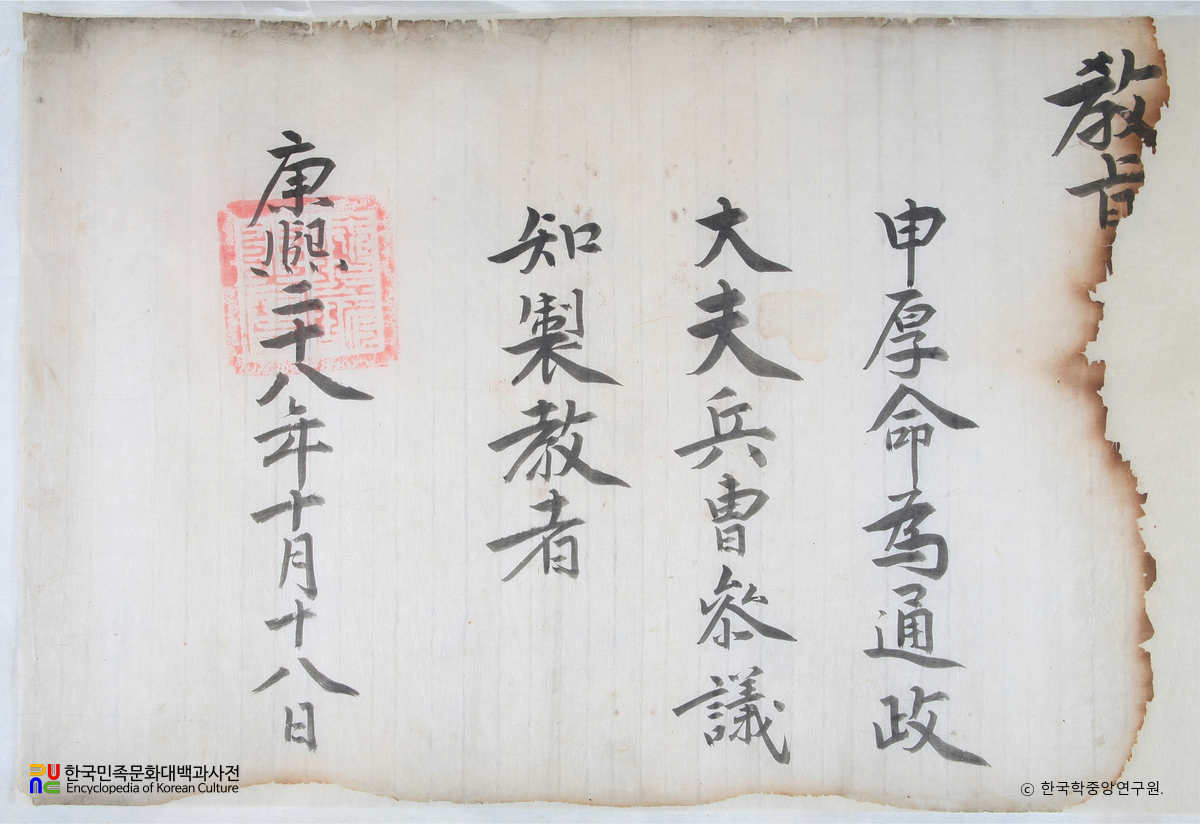 敎旨
申厚命為通政
大夫兵曺叅議
知製敎者
康熙二十八年十月十八日
한국민족문화대백과사전
Encyclopedia of Korean Culture
ⓒ 한국학중앙연구원.